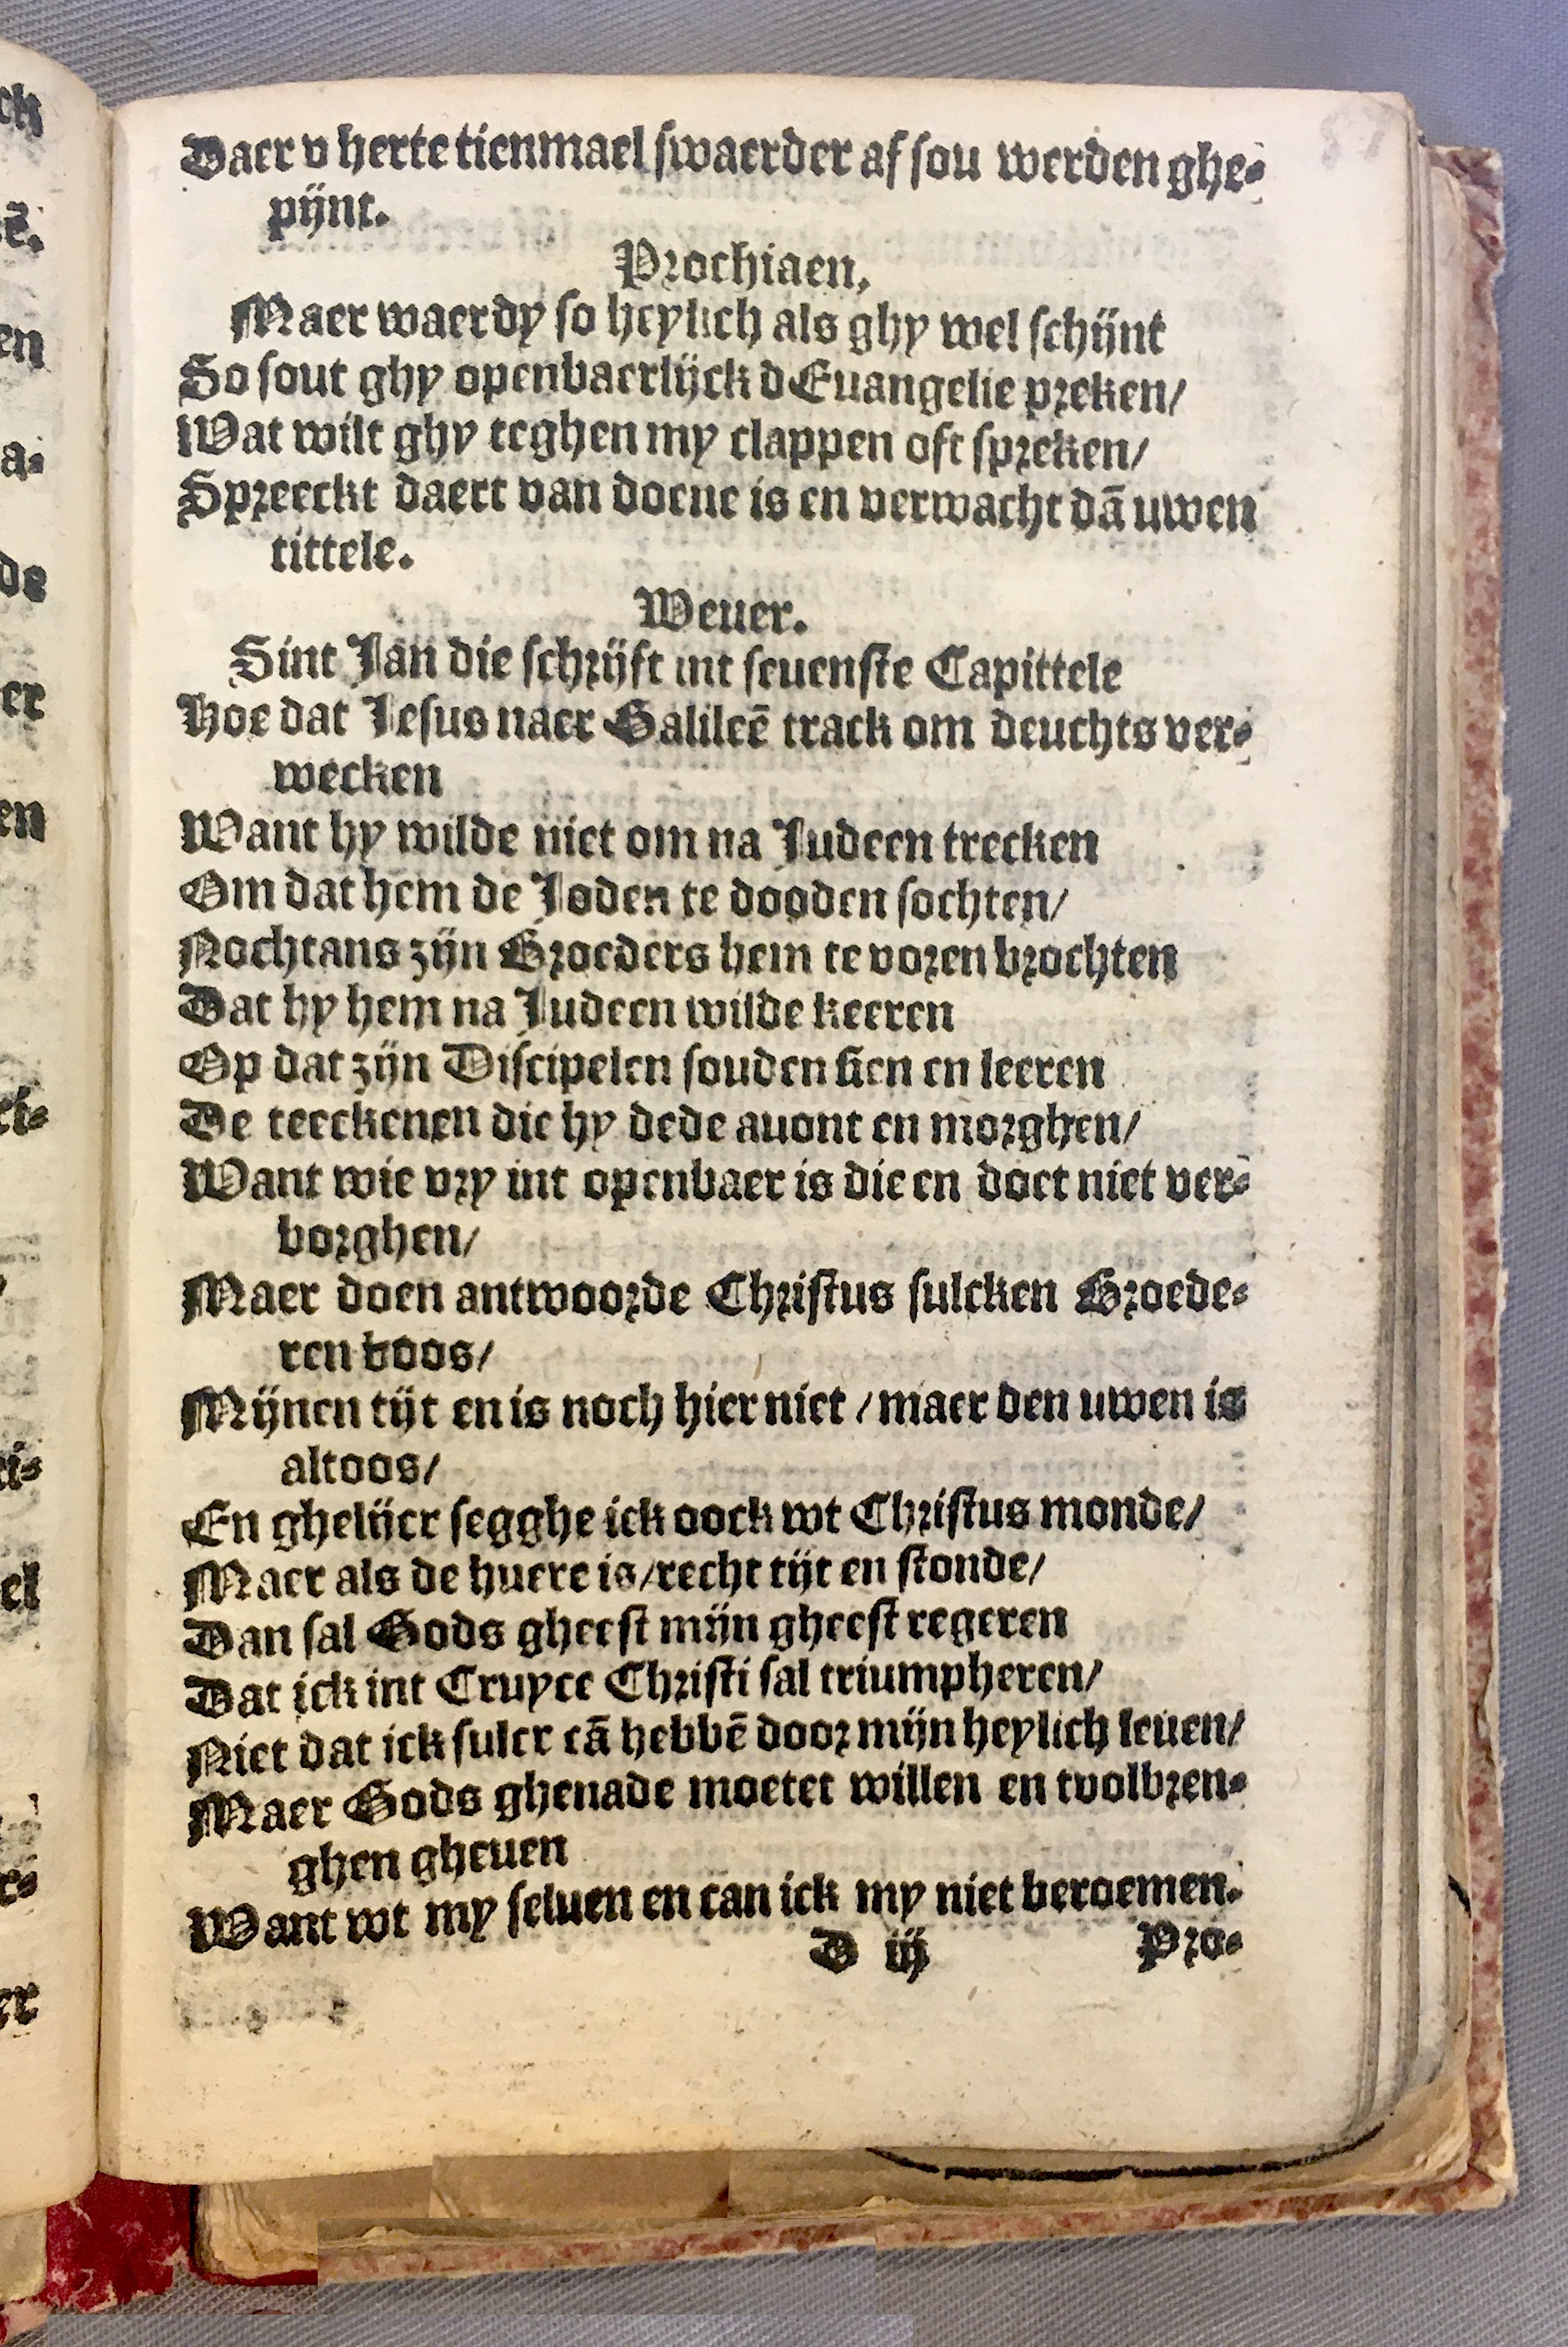 Daer v herte tienmael swaerder af sou werden ghe-
pijnt.
Prochiaen,
Maer waerdy so heylich als ghy wel schijnt
So sout ghy openbaerlijck dEuangelie preken/
Wat wilt ghy teghen my clappen oft spreken/
Spreeckt daert van doene is en verwacht dā uwen
tittele.
Weuer.
Sint Jan die schrijft int seuenste Capittele
Hoe dat Jesus naer Galileē track om deuchts ver-
wecken
Want hy wilde niet om na Judeen trecken
Om dat hem de Joden te dooden sochten/
Nochtans zijn Broeders hem te voren brochten
Dat hy hem na Judeen wilde keeren
Op dat zijn Discipelen souden sien en leeren
De teeckenen die hy dede auont en morghen/
Want wie vry int openbaer is die en doet niet ver-
borghen/
Maer doen antwoorde Christus sulcken Broede-
ren boos/
Mijnen tijt en is noch hier niet / maer den uwen is
altoos/
En ghelijct segghe ick oock wt Christus monde/
Maer als de huere is/recht tijt en stonde/
Dan sal Gods gheest mijn gheest regeren
Dat ick int Cruyce Christi sal triumpheren/
Niet dat ick sulct cā hebbē door mijn heylich leuen/
Maer Gods ghenade moetet willen en tvolbren-
ghen gheuen
Want wt my seluen en can ick my niet beroemen.
D iij Pro-